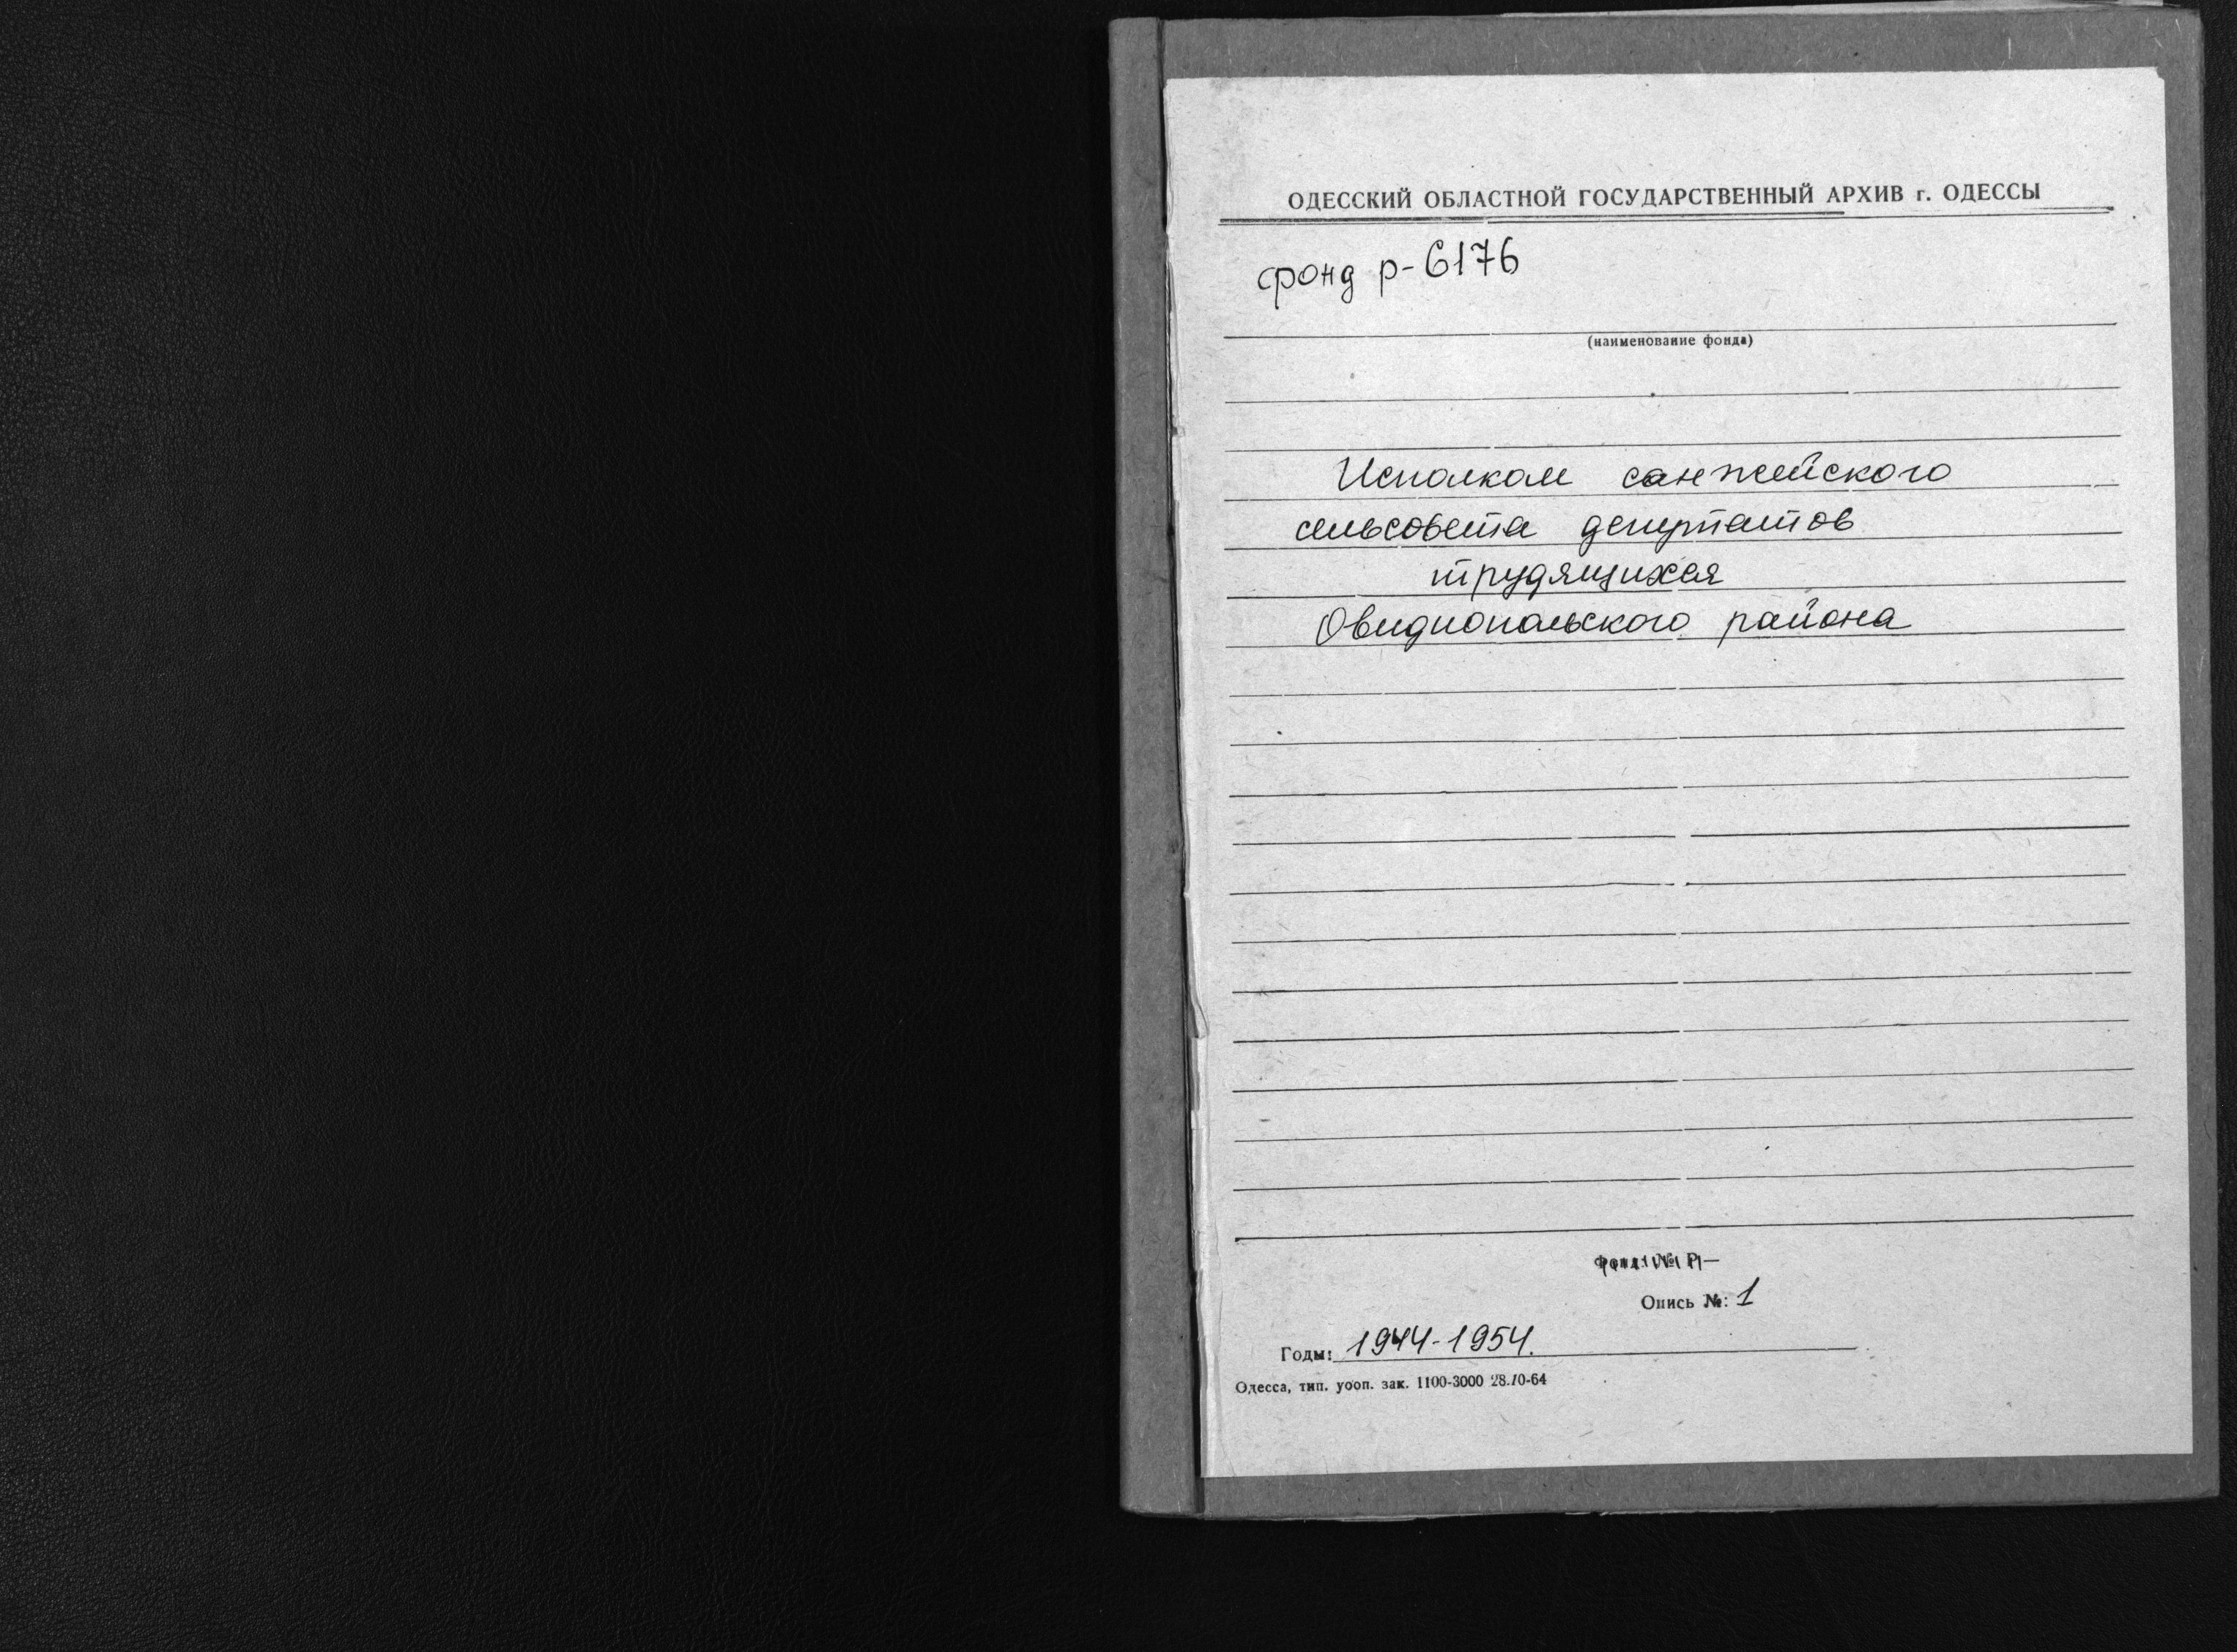 ОДЕССКИЙ ОБЛАСТНОЙ ГОСУДАРСТВЕННЫЙ АРХИВ г. ОДЕССЫ
фонд р-6176
(наименование фонда)
Исполком санжейского
сельсовета депутатов
трудящихся
Овидиопольского района
Фонд № Р-
Опись №: 1
Годы: 1944-1954.
Одесса, тип. уооп. зак. 1100-3000 28.10-64